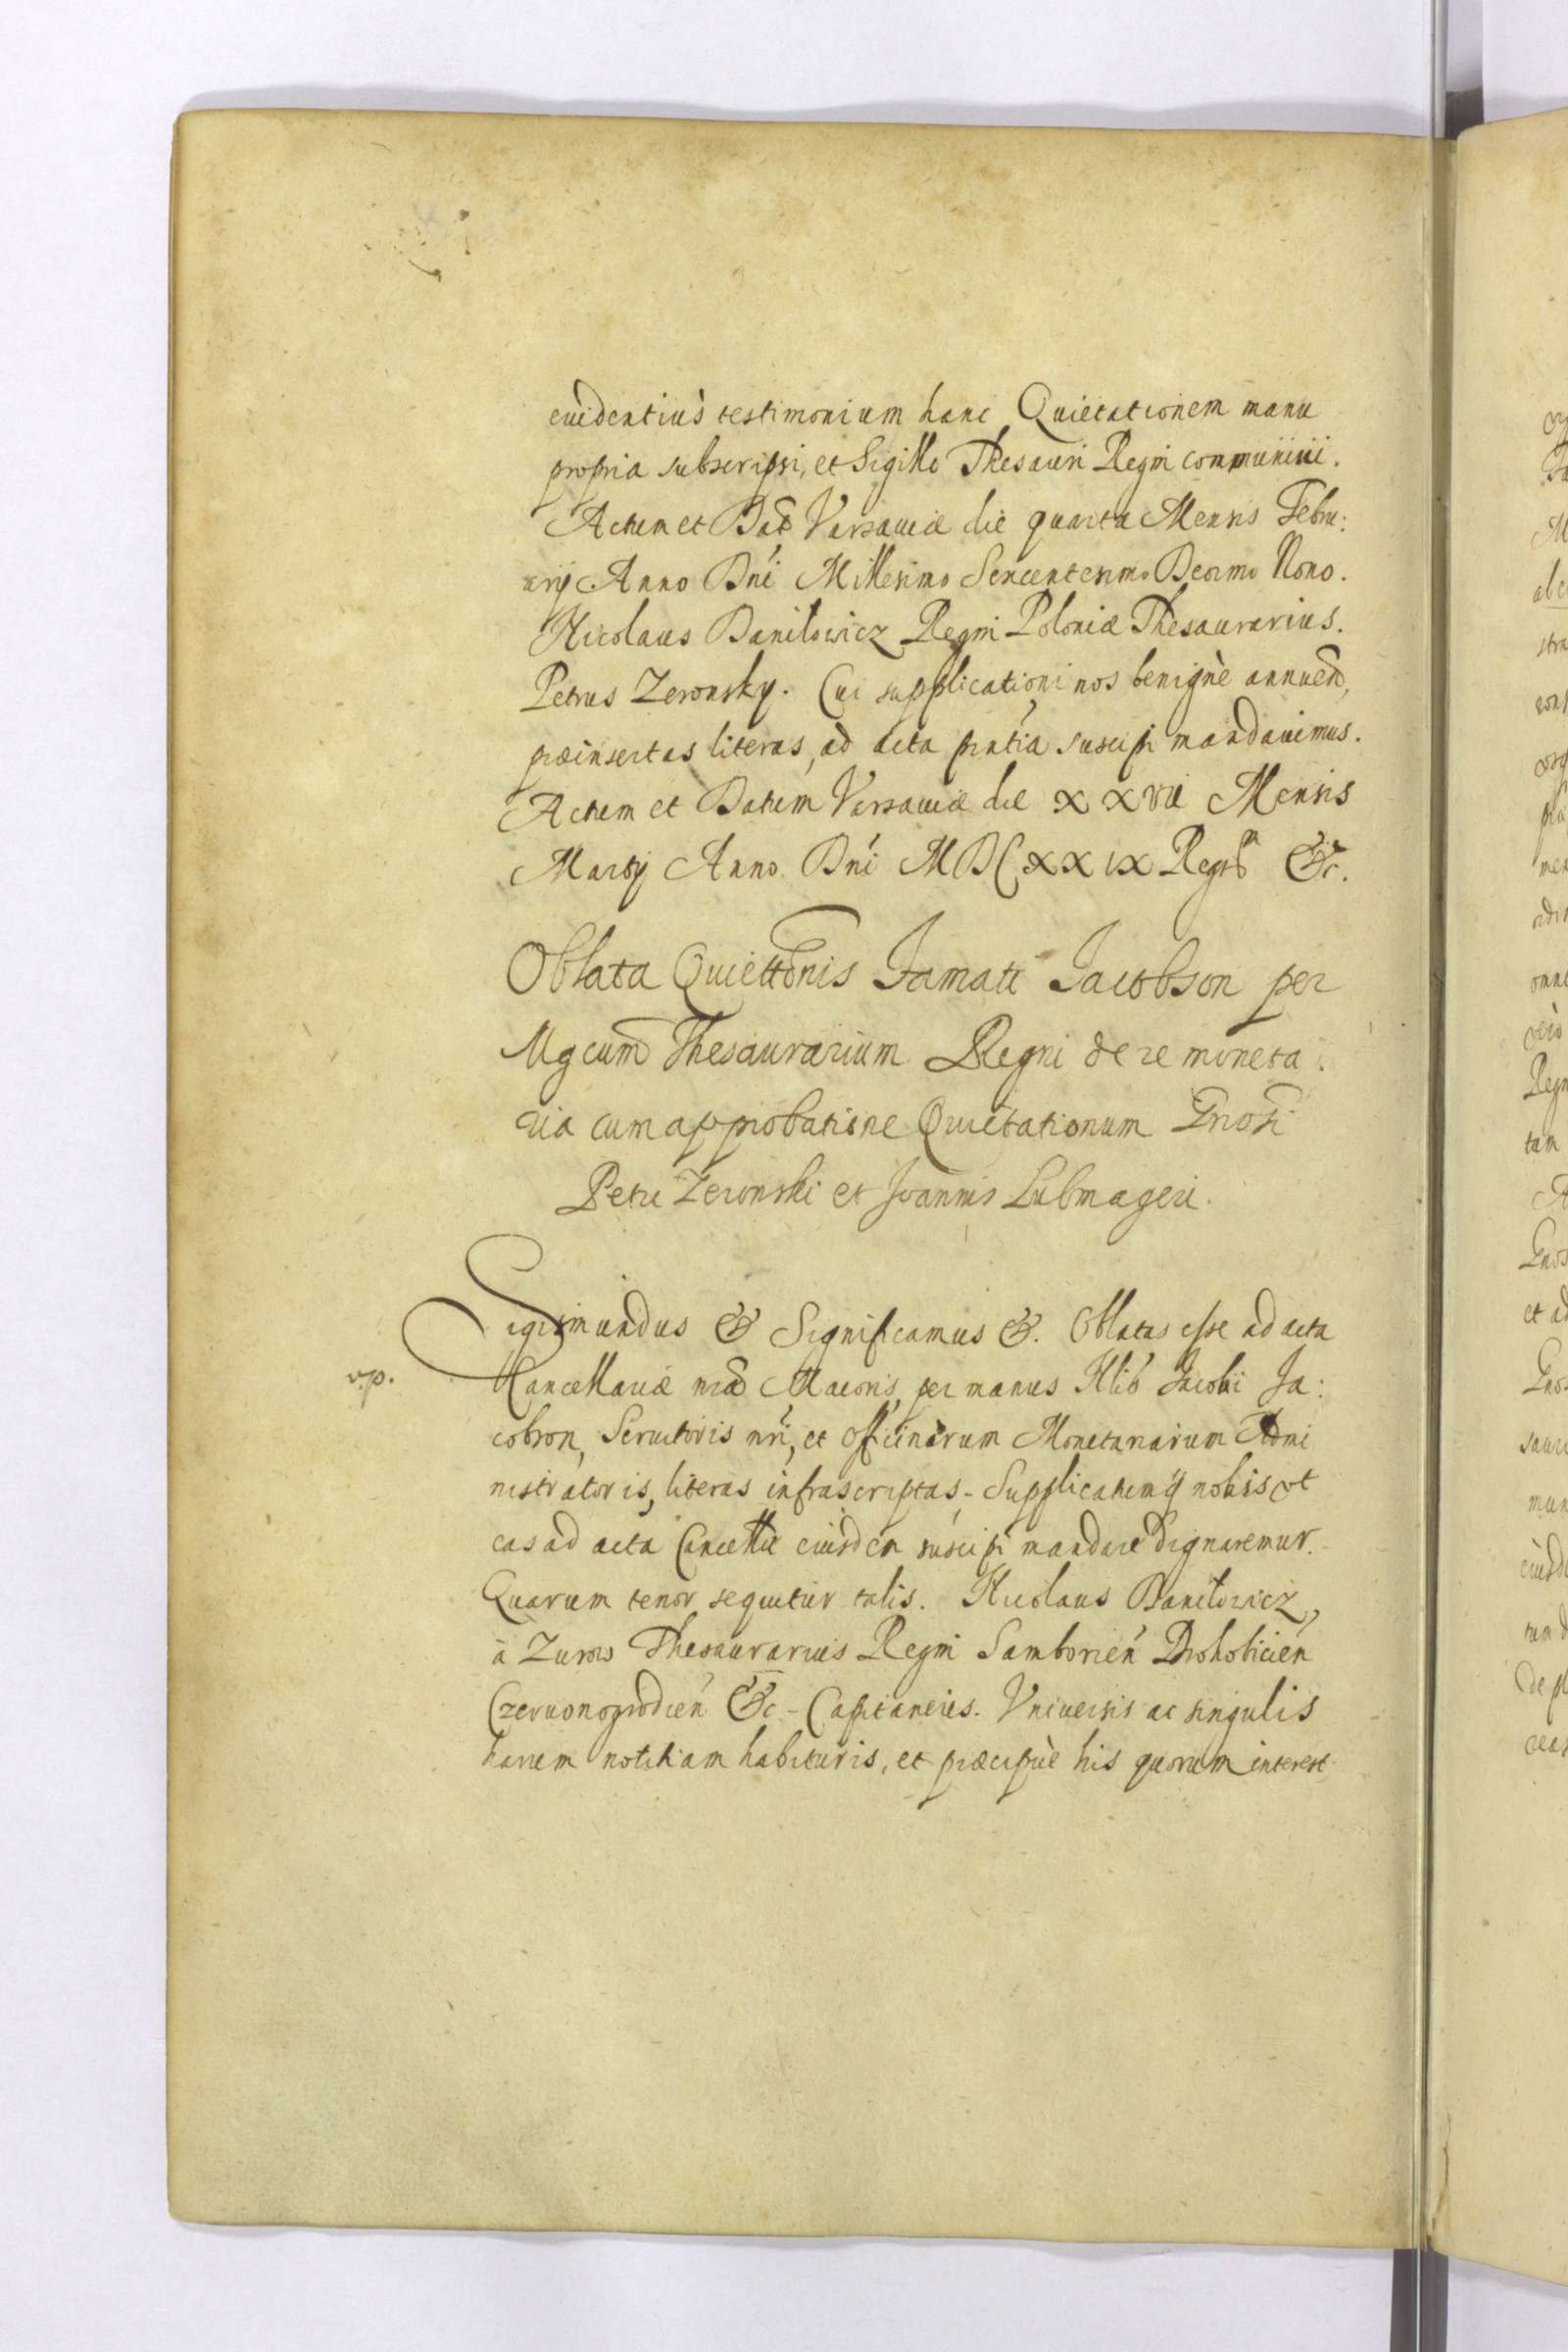 euidentius testimonium hanc Quietationem manu
propria subscripsi, et Sigillo Thesauri Regni communiui.
Actum et Dat Varsauiæ die quarta Mensis Febru:
arij Anno Dni Millesimo Sexcentesimo Decimo Nono.
Nicolaus Danilowicz Regni Poloniæ Thesaurarius.
Petrus Zeronsky. Cui supplicationi nos benignè annuen,
præinsertas literas, ad acta pntia suscipi mandauimus.
Actum et Datum Varsauiæ die XXVII Mensis
Martij Anno Dni MDCXXIX Regn &c.
Oblata Quiettonis Famati Jacobson per
Mgcum Thesaurarium Regni de re moneta
ria cum approbatione Quietationum Gnosi
Petri Zeronski et Joannis Lubmageri.
Sigismundus & Significamus &. Oblatas esse ad acta
v.p.
Cancellariæ nræ Maioris, per manus Jacobi Ja:
cobson, Seruitoris nri, et officinarum Monetariarum Admi
nistratoris, literas infrascriptas - Supplicatumq nobis vt
eas ad acta Cancellie eiusdem suscipi mandare dignaremur.
Quarum tenor sequitur talis. Nicolaus Danilowicz,
à Zurow Thesaurarius Regni Samborien Drohobicien
Czeruonogrodien &c - Capitaneus. Vniuersis ac singulis
harum notitiam habituris, et præcipuè his quorum interest